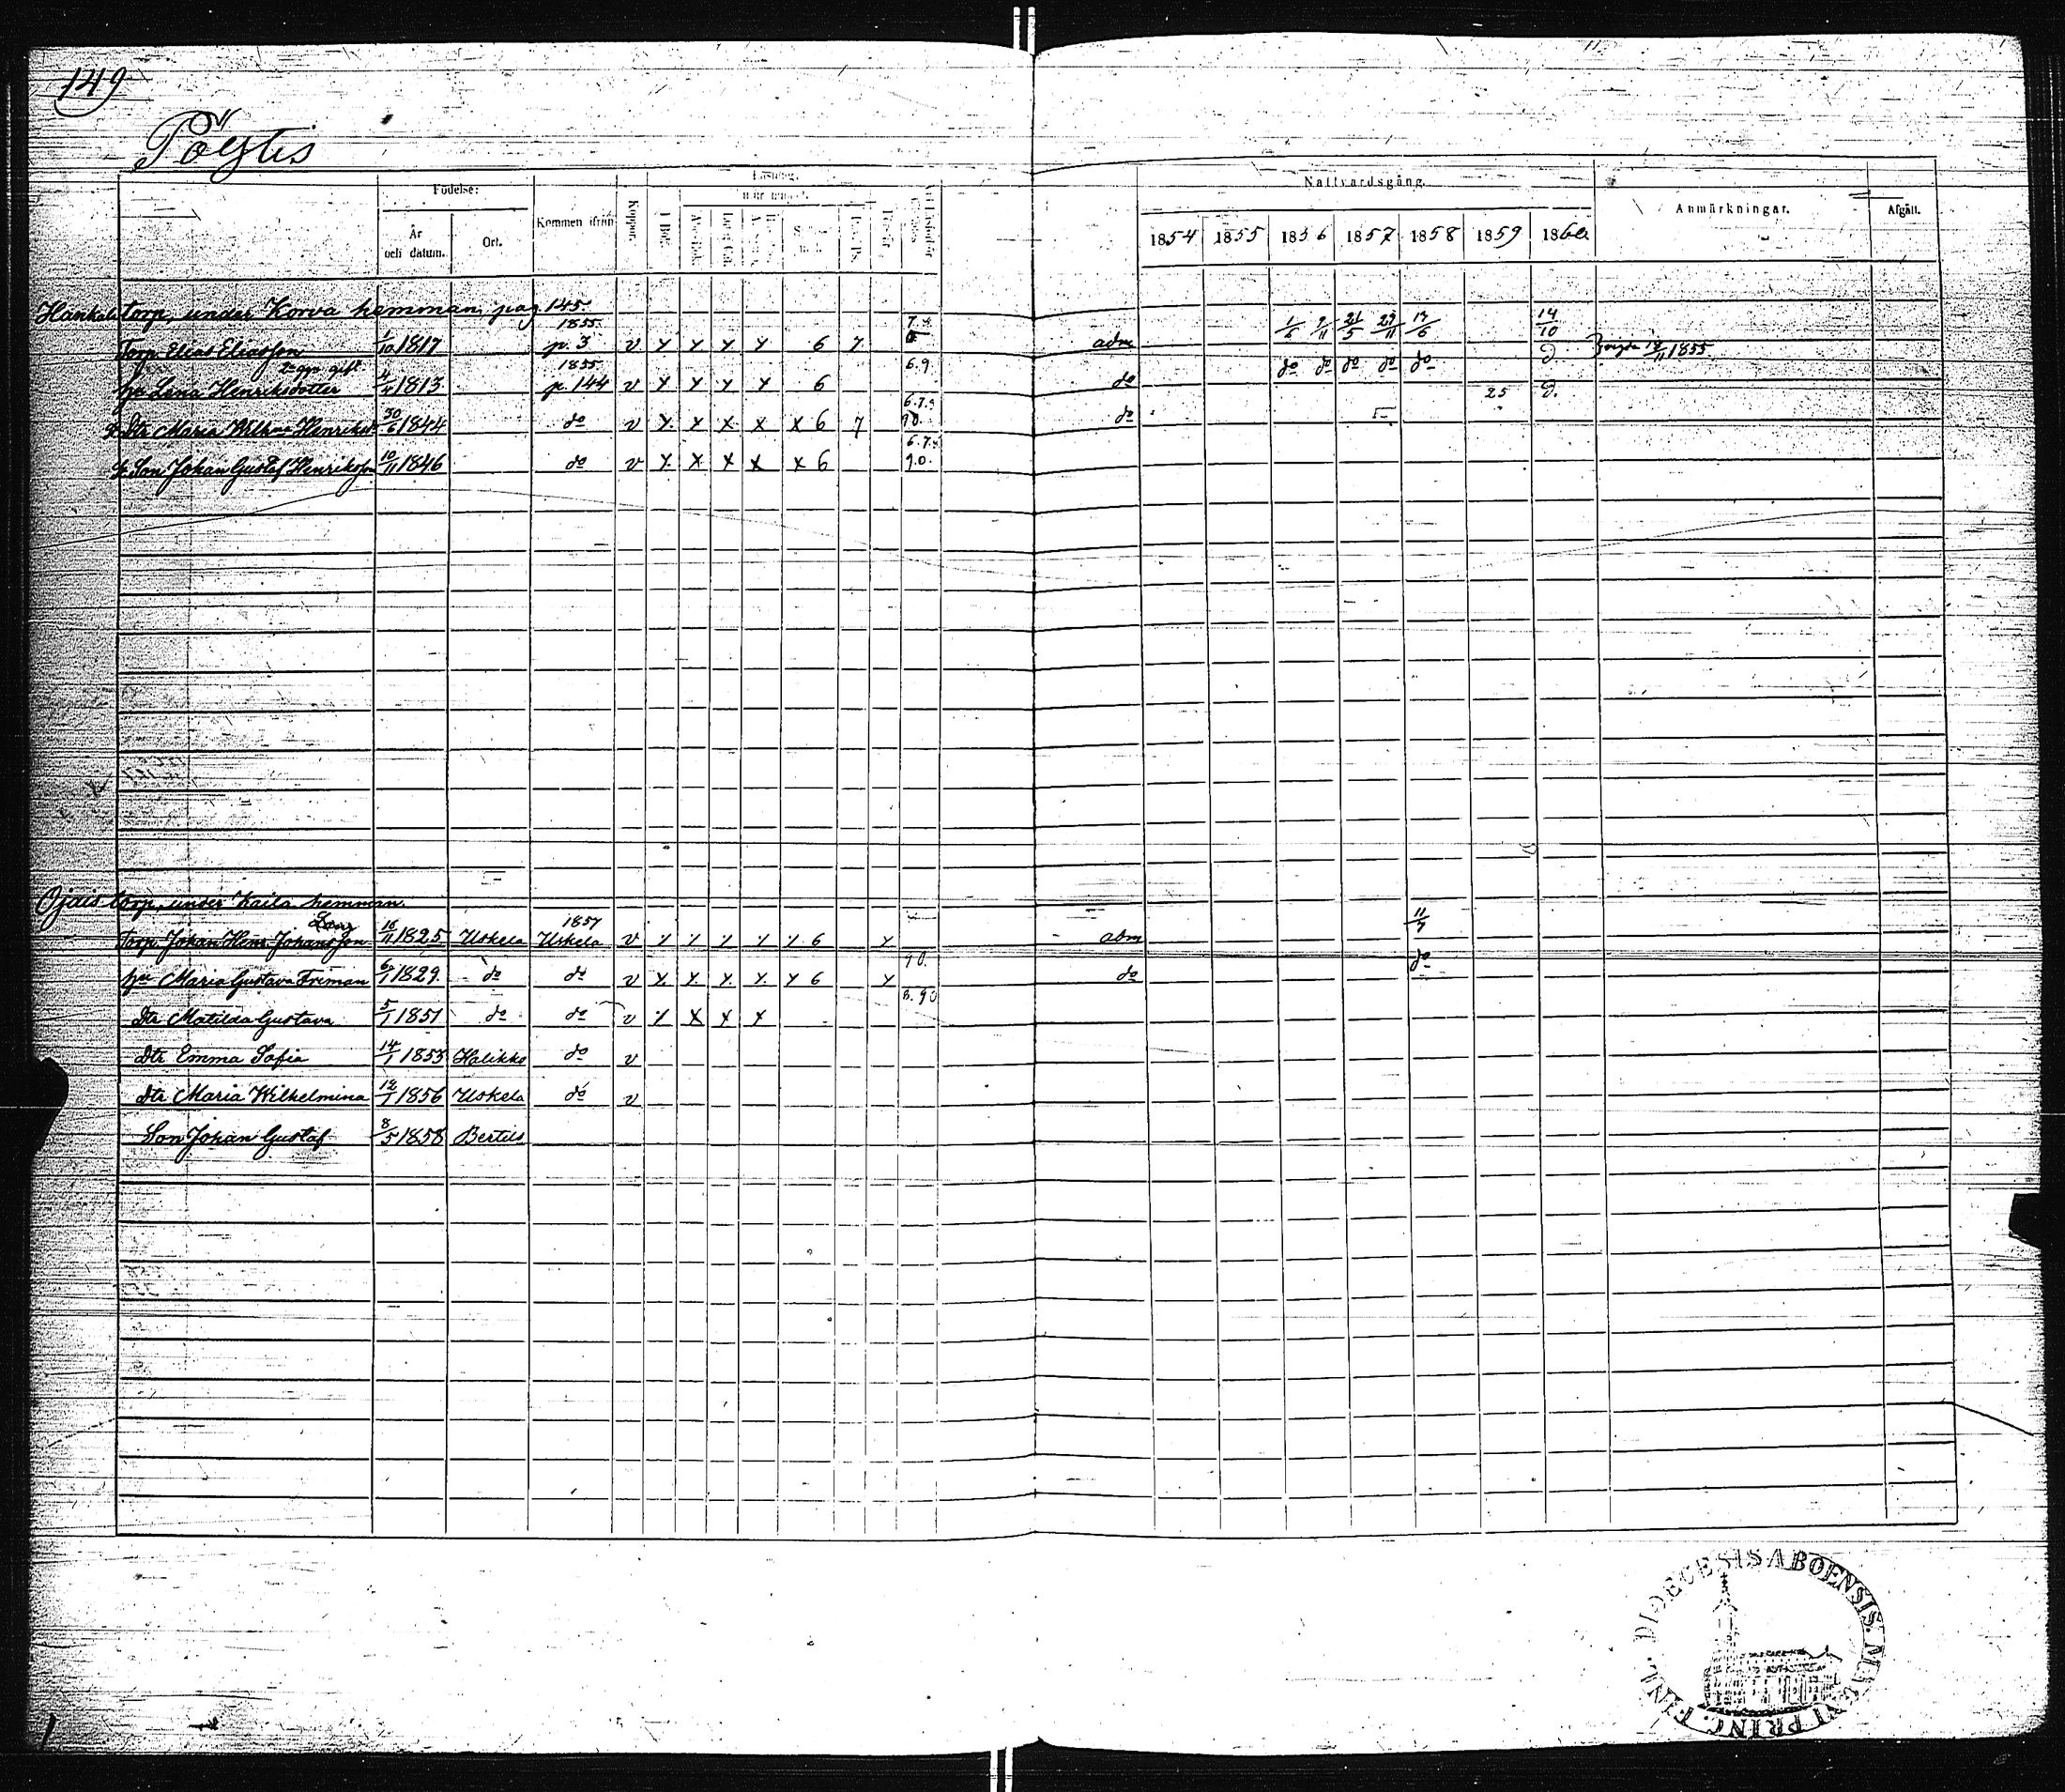 149
Pöytis
Födelse:
År och datum.
Ort.
Kommen ifrån
Koppor.
Läsning.
I Bok.
Nattvardsgång.
1854 1855 1856 1857 1858 1859 1860
Anmärkningar.
Afgått.
Hankala torp, under Korva hemman, pag 145
Torp. Elias Eliasson 1/10 1817 1855 p. 3 v x x x x 6 7 adm 1/6 9/11 21/5 29/11 14/10 1855
2 ggr gift
hu Lena Henriksdotter 1813 1855 p. 144 v x x x x 6 6.9 do do do do do do
Dtr Maria Henriksd 30/6 1844 do v x x x x x 6 7 do 25
Son Johan Gustaf Henriksson 10/11 1846 do v x x x x x 6 9.0.
Ojais torp, under Kaila hemman.
Torp. Johan Henr Johansson 16/11 1825 Uskela 1857 Uskela v x x x x x 6 x adm
hu Maria Gustava Friman 6/1 1829 do do v x x x x x 6 x 90. do do
Dtr Matilda Gustava 5/1 1851 do do v x x x x 8.90
Dtr Emma Sofia 14/1 1853 Halikko do v
Dtr Maria Wilhelmina 1856 Uskela do v
Son Johan Gustaf 8/5 1858 Bertils
DIOECESIS ABOENSIS. MAGNI PRINC. FINL.